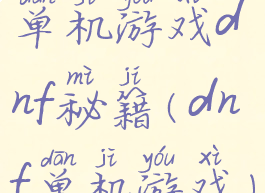 dān jī yóu xì
单机游戏d
mì jí
nf秘籍(dn
dān jī yóu xì
f单机游戏)